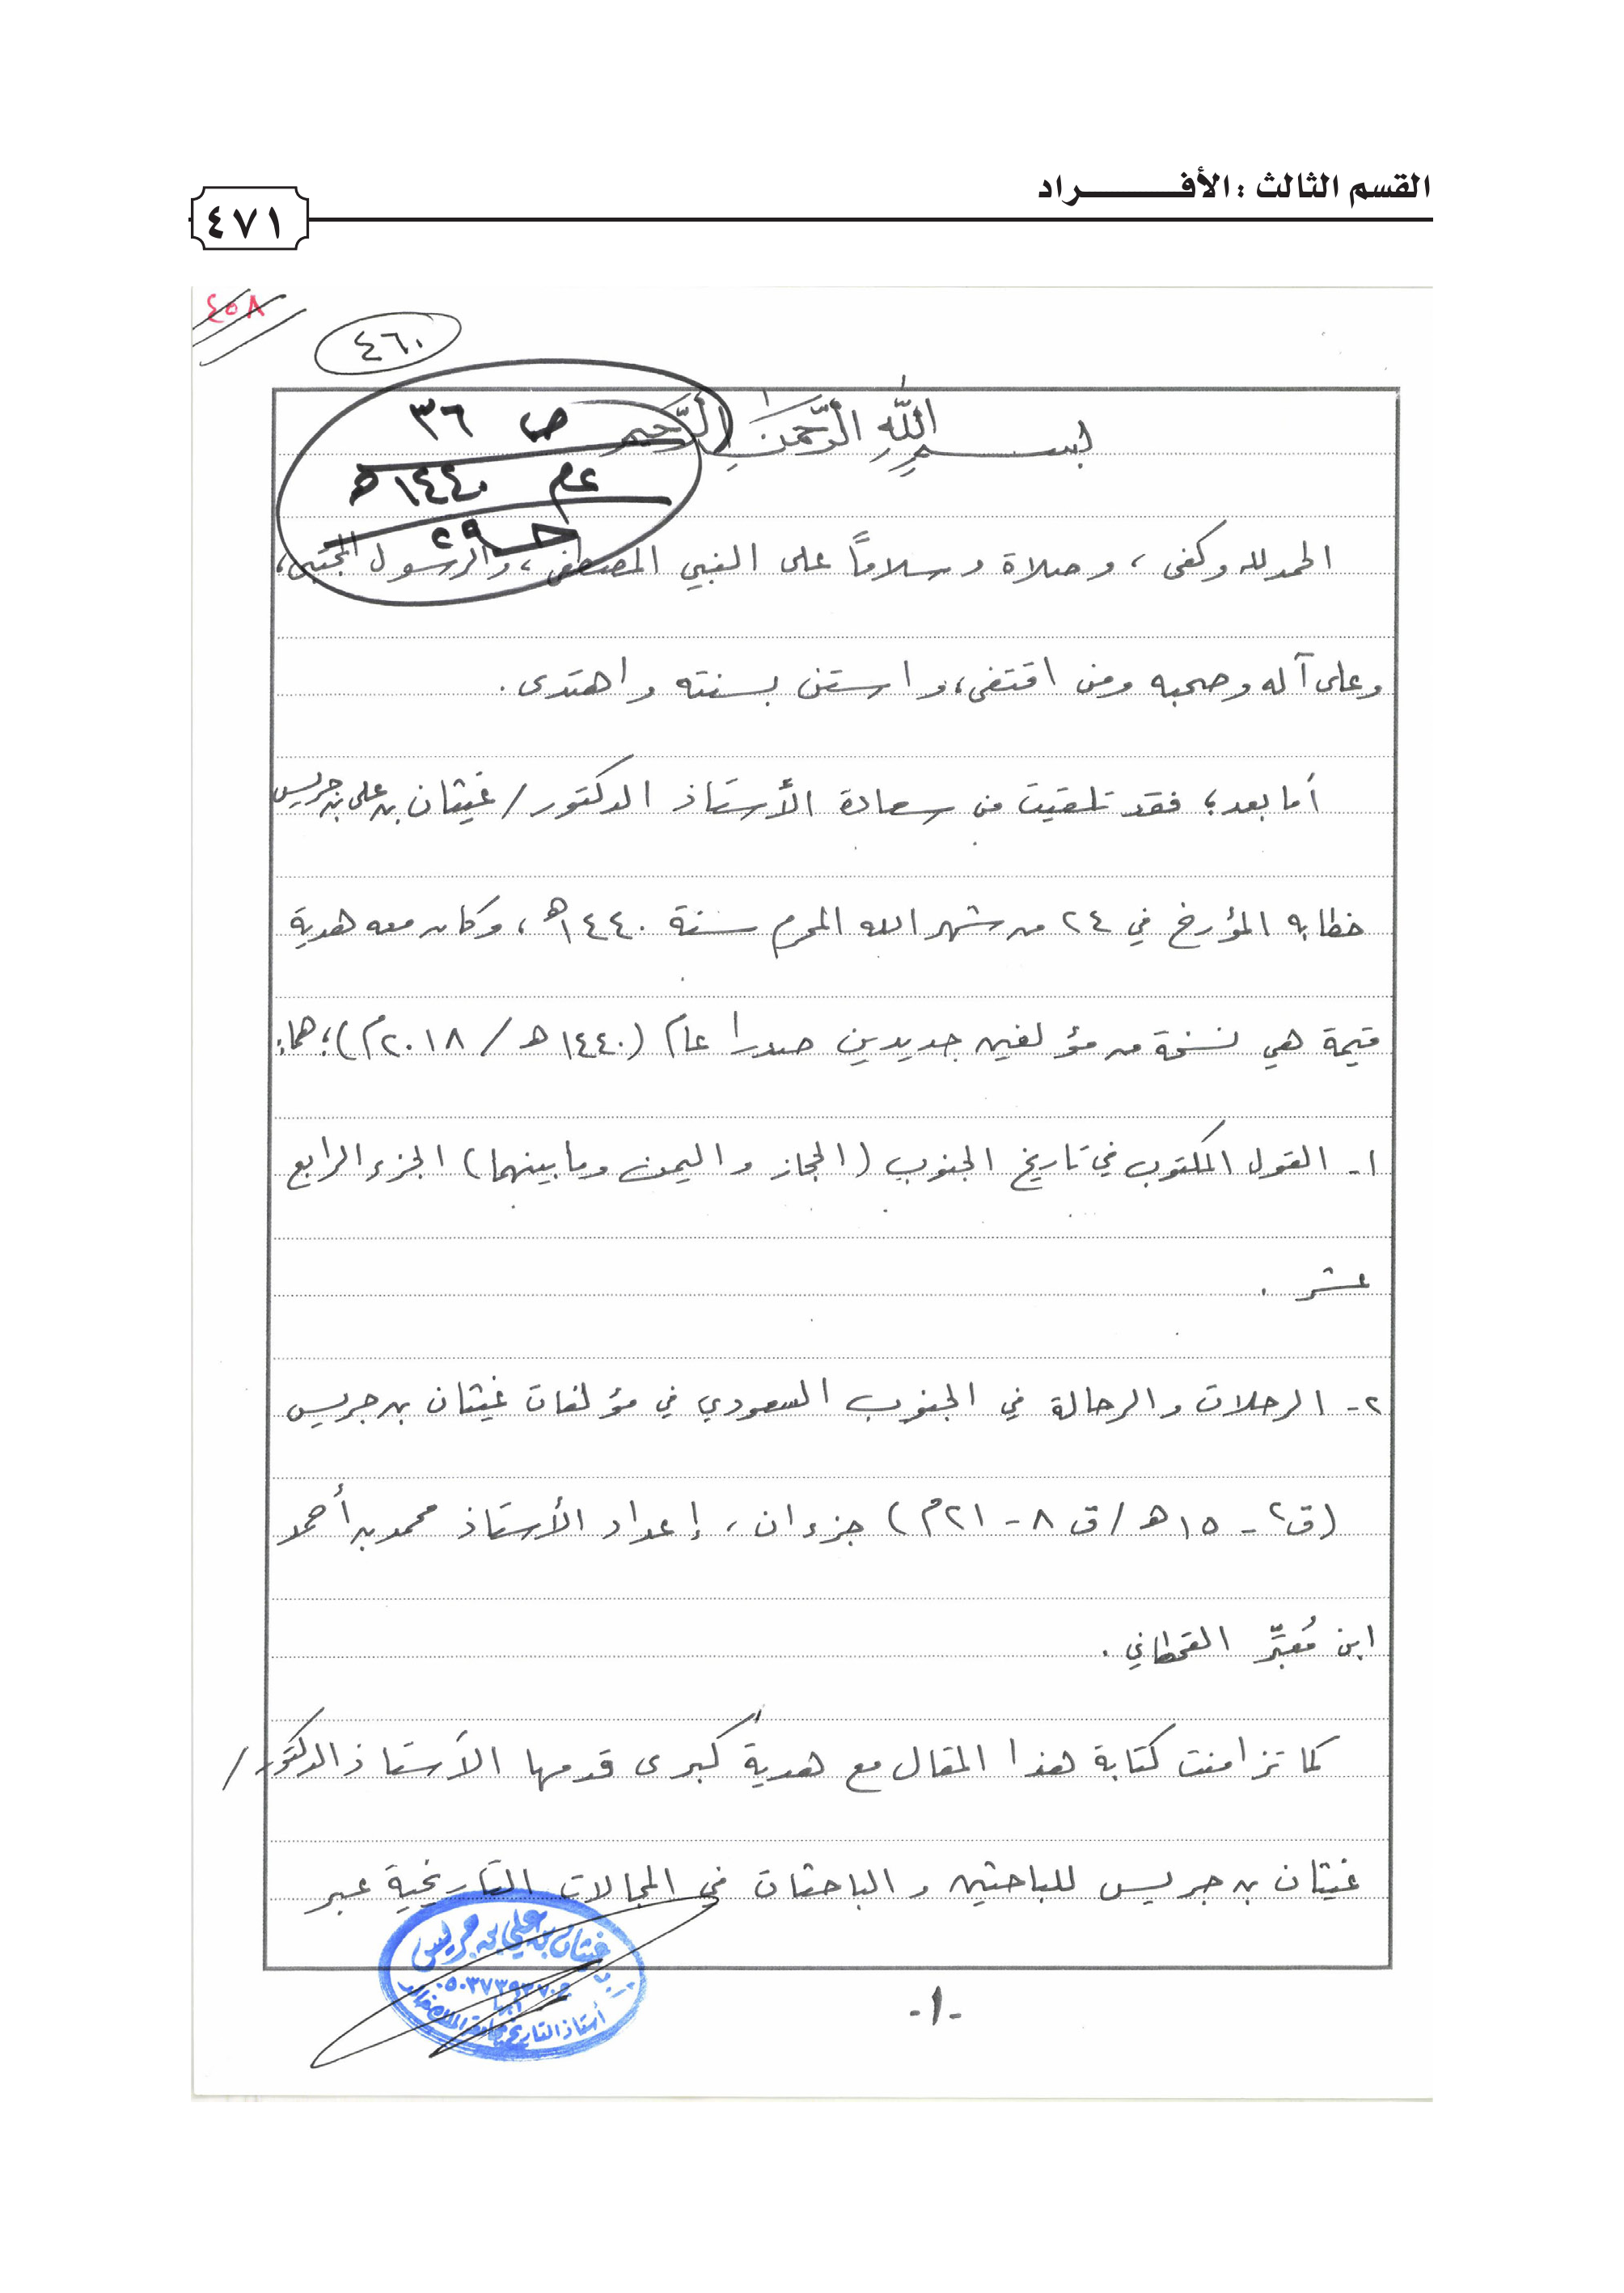 القسم الثالث : الأفـــــراد
٤٧١
٤٥٨
٤٦٠
ص ٣٦
عام ١٤٤٠هـ
جـ ٢٩
بسم اللَّهِ الرَّحمَنِ الرَّحيم
الحمد لله وكفى، وصلاة وسلاماً على النبي المصطفى، والرسول المجتبى،
وعلى آله وصحبه ومن اقتفى، واستن بسنته واهتدى.
أما بعد؛ فقد تلقيت من سعادة الأستاذ الدكتور/ غيثان بن علي بن جريس
خطابه المؤرخ في ٢٤ من شهر الله المحرم سنة ١٤٤٠هـ، وكان معه هدية
قيمة هي نسخة من مؤلفين جديدين صدرا عام (١٤٤٠هـ / ٢٠١٨م)؛ هما:
١- القول المكتوب في تاريخ الجنوب (الحجاز واليمن وما بينهما) الجزء الرابع
عشر.
٢- الرحلات والرحالة في الجنوب السعودي في مؤلفات غيثان بن جريس
(ق٢ - ١٥هـ / ق٨ - ٢١م) جزءان، إعداد الأستاذ محمد بن أحمد
ابن مُعبِّر القحطاني.
كما تزامنت كتابة هذا المقال مع هدية كبرى قدمها الأستاذ الدكتور/
غيثان بن جريس للباحثين والباحثات في المجالات التاريخية عبر
غيثان بن علي بن جريس
أستاذ التاريخ بجامعة الملك خالد
-١-